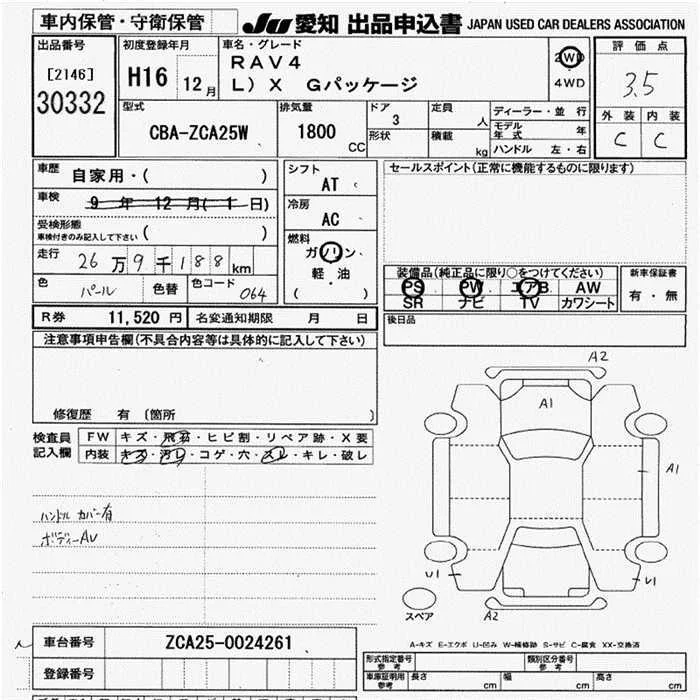 車内保管・守衛保管
JU 愛知 出品申込書 JAPAN USED CAR DEALERS ASSOCIATION
出品番号
[2146]
30332
初度登録年月
H16 12月
車名・グレード
RAV4
L)X Gパッケージ
2WD
4WD
評価点
3.5
外装 内装
C C
型式
CBA-ZCA25W
排気量
1800 CC
ドア
3
形状
定員
人
積載
kg
ディーラー・並行
モデル年式 年
ハンドル 左・右
車歴
自家用・( )
車検
9年 12月( 1日)
受検形態
車検付きのみ記入して下さい ( )
走行
26万9千188km
色
パール
色替
色コード
064
シフト
AT
冷房
AC
燃料
ガソリン
軽・油
( )
セールスポイント(正常に機能するものに限ります)
装備品(純正品に限り○をつけてください)
PS PW エアB AW
SR ナビ TV カワシート
新車保証書
有・無
後日品
R券 11,520円 名変通知期限 月 日
注意事項申告欄(不具合内容等は具体的に記入して下さい)
修復歴 有 〔箇所 〕
検査員
記入欄
FW キズ・飛石・ヒビ割・リペア跡・X要
内装 キズ・汚レ・コゲ・穴・スレ・キレ・破レ
ハンドル カバー有
ボディーAU
A2
A1
A1
U1
U1
スペア
A2
A-キズ E-エクボ U-凹み W-補修跡 S-サビ C-腐食 XX-交換済
車台番号
ZCA25-0024261
登録番号
形式指定番号
参考
類別区分番号
参考
車庫証明用
参考
長さ cm 幅 cm 高さ cm